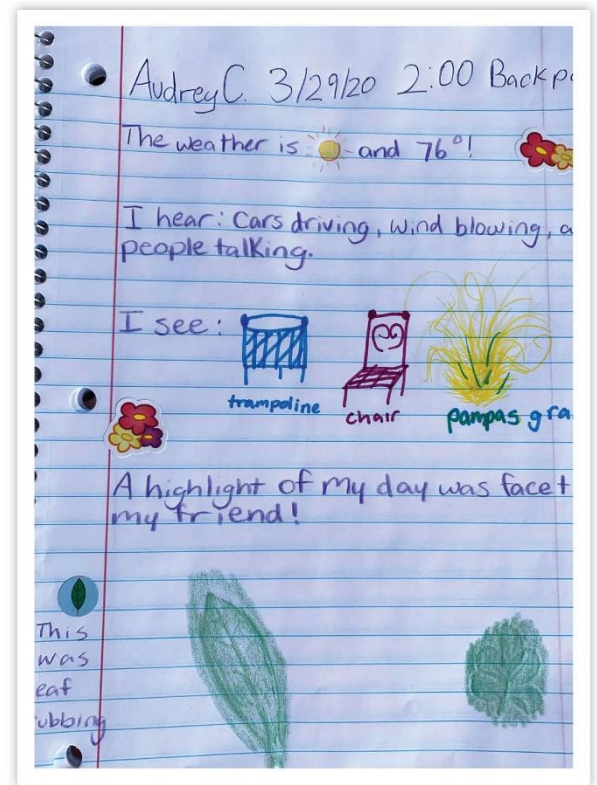 Audrey C. 3/29/20 2:00 Backp
The weather is and 76°!
I hear: Cars driving, wind blowing, a
people talking.
I see:
trampoline chair pampas gra
A highlight of my day was facet
my friend!
This
was
eaf
ubbing